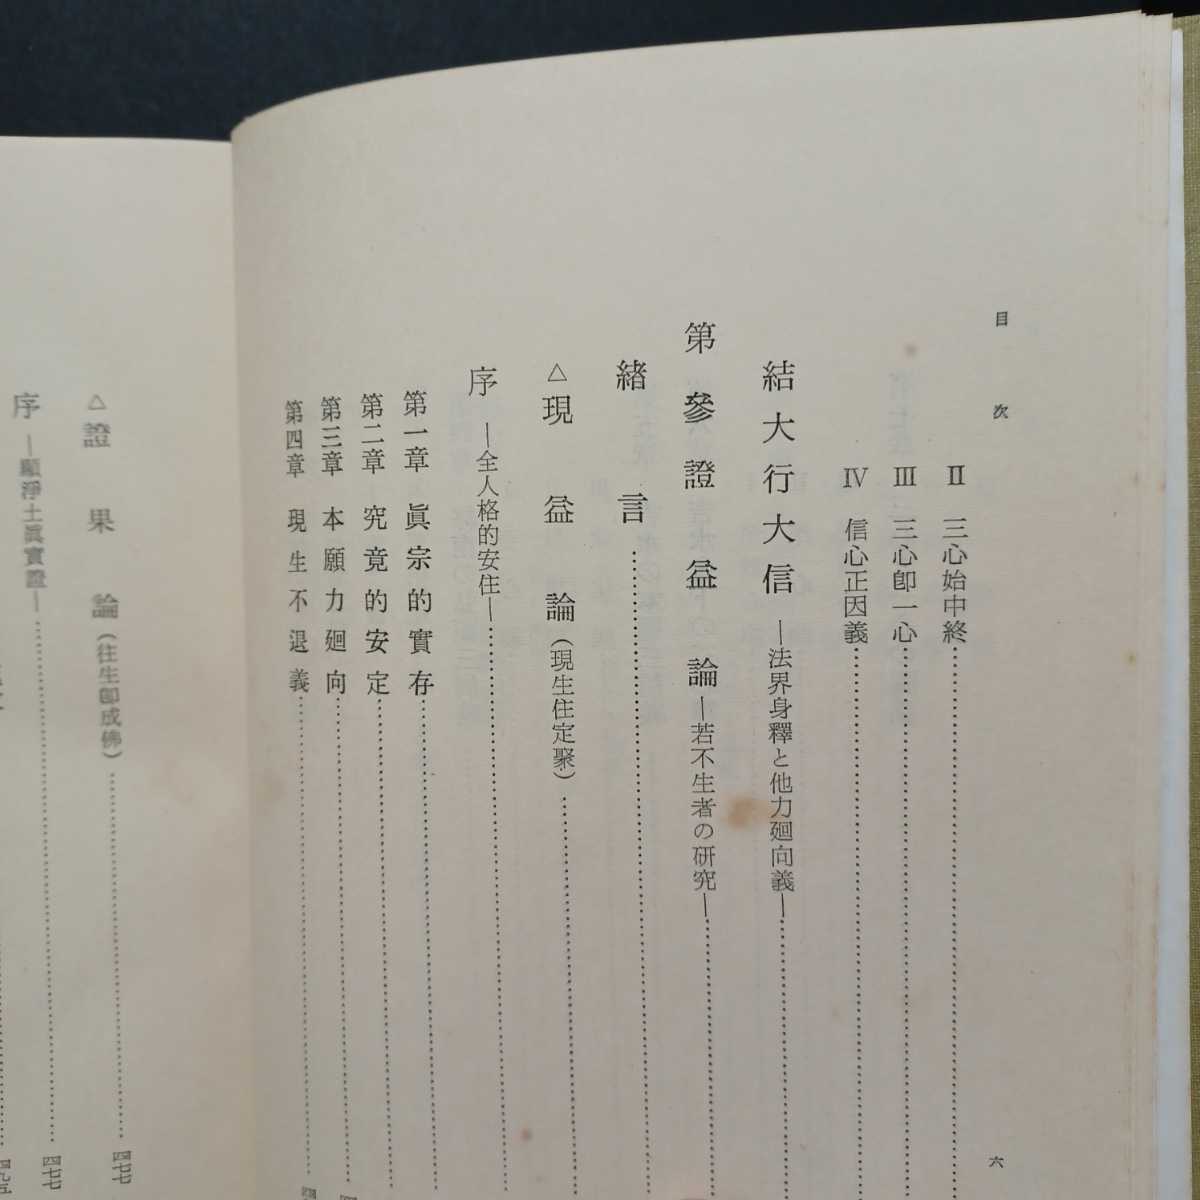 目次
II 三心始中終
III 三心卽一心
IV 信心正因義
結大行大信 ―法界身釋と他力廻向義―
第參證益論 ―若不生者の研究―
緖言
△現益論(現生住定聚)
序 ―全人格的安住―
第一章 眞宗的實存
第二章 究竟的安定
第三章 本願力廻向
第四章 現生不退義
六
△證果論(往生卽成佛) 四七七
序 ―顯淨土眞實證― 四七七
四九五